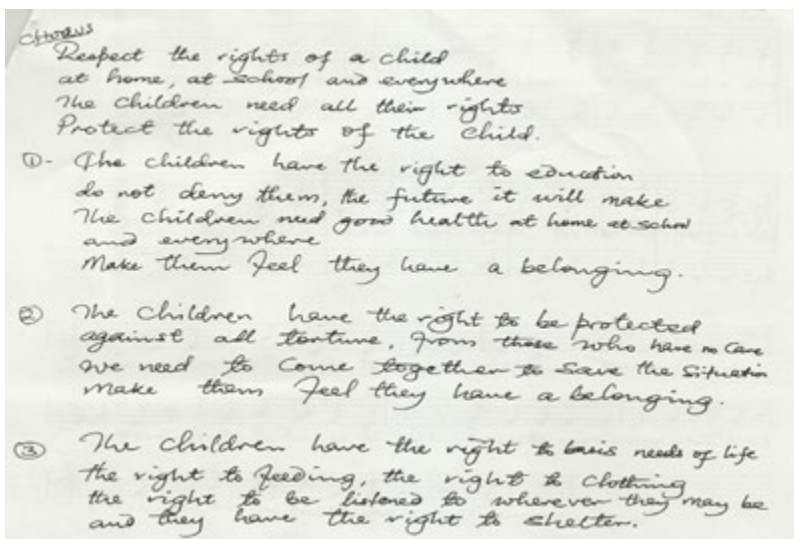 Chorus
Respect the rights of a child
at home, at school and everywhere
The children need all their rights
Protect the rights of the child.
①- The children have the right to education
do not deny them, the future it will make
The children need good health at home at school
and everywhere
Make them feel they have a belonging.
② The children have the right to be protected
against all torture, from those who have no care
We need to come together to save the situation
Make them feel they have a belonging.
③ The children have the right to basis needs of life
the right to feeding, the right to clothing
the right to be listened to wherever they may be
and they have the right to shelter.